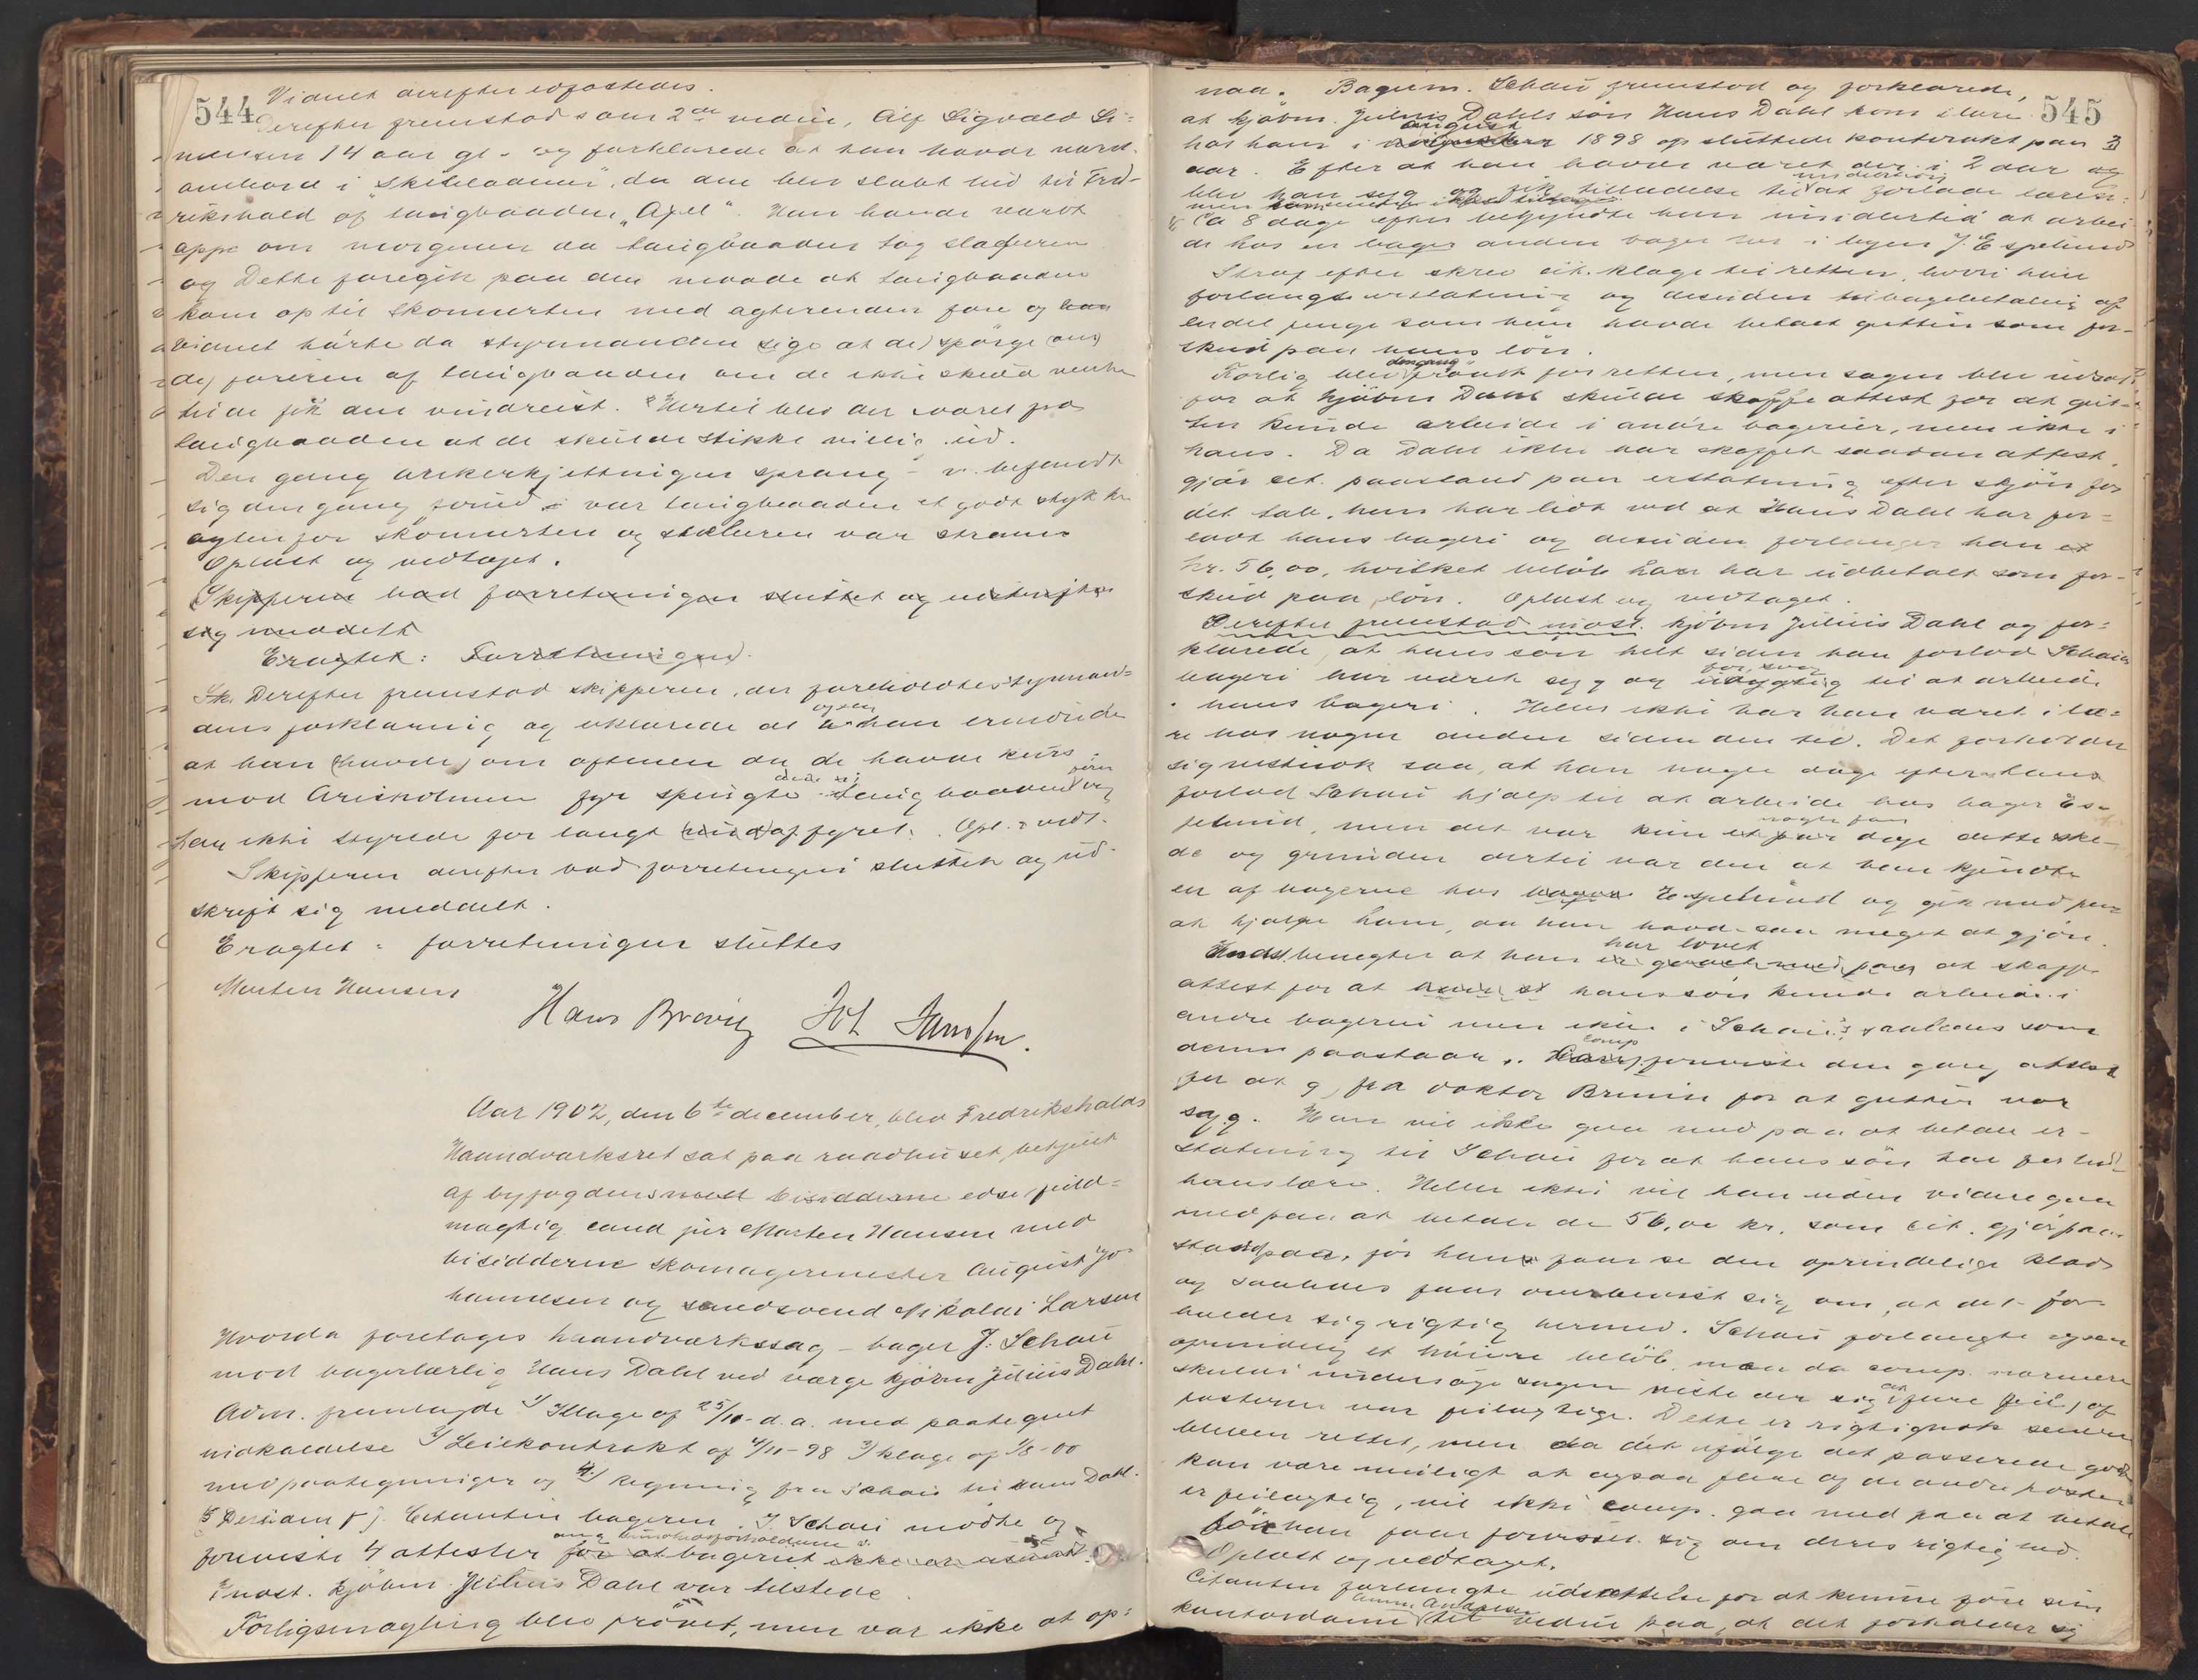 544
Vidnet derefter edfæstedes.
Derefter fremstod som 2det vidne, Alf Sigvald Si-
monsen 14 aar gl. og forklarede at han havde været
ombord i "Skibladner", da den blev slæbt hid til Fred-
rikshald af taugbaaden "Axel". Han havde været
oppe om morgenen da taugbaaden tog slæberen
og Dette foregik paa den maade at taugbaaden
kom op til skonnerten med agterenden fore og
vidnet hørte da styrmanden (sige at de) spørge om
de) føreren af taugbaaden om de ikke skulde vente
til de fik den vindreist. Hertil blev der svaret fra
taugbaaden at de skulde stikke villig ud.
Den gang ankerkjettingen sprang - v. befandt
sig den gang forud - var taugbaaden et godt stykke
agten for skonnerten og slæberen var stram
Oplæst og vedtaget.
Skipperen bad forretningen sluttet og udskrift
sig meddelt
Eragtet: Forretningen
Sk. Derefter fremstod skipperen, der foreholdtes styrmand-
dens forklaring og erklærede at ogsaa han erindrede
at han (havde) om aftenen da de havde kurs
mod Ariesholmen fyr spurgte dem i taugbaaden
han ikke styrede for langt af fyret. Opl. & vedt.
Skipperen derefter bad forretningen sluttet og ud-
skrift sig meddelt.
Eragtet: forretningen sluttes
Morten Hansen
Hans Brovig Joh Jansen.
Aar 1902, den 6te december, blev Fredrikshalds
Haandverksret sat paa raadhuset, betjent
af byfogdens med bisidderne edsv. fuld-
mægtig cand jur Morten Hansen med
bisidderne skomagermester August Jo-
hannesen og svend Nikolai Larsen
Hvorda foretages haandverkssag - bager J. Schau
mod bagerlærling Hans Dahl ved værge kjøbm Julius Dahl.
Adm. fremlagde 1) Klage af 25/10 d.a. med paategnet
indkaldelse 2) Leiekontrakt af 4/11-98 3) klage af 1/8-00
med paategninger og 4) Regning fra Schau til Hans Dahl.
5 Desuden Citanten bageren J. Schau mødte og
ang sundhedsforholdene i
foreviste 4 attester for at bageriet ikke var usundt.
Indst. kjøbm Julius Dahl var tilstede
Forligsmægling blev prøvet, men var ikke at op-
545
naa. Bagerm. Schau fremstod og forklarede,
at kjøbm. Julius Dahls søn Hans Dahl kom i lære
august
hos ham i 1898 og sluttede kontrakt paa 3
aar. Efter at han havde været der i 2 aar og
blev han syg og fik tilladelse til at forlade læren.
Ca 8 dage efter begyndte han imidlertid at arbei-
de hos en bager anden bager her i byen J. Espelund
Strax efter skrev cit. klage til retten, hvori han
forlangte erstatning og desuden tilbagebetaling af
endel penge som han havde betalt gutten som for-
skud paa hans løn.
dengang
Forlig blev prøvet for retten, men sagen blev udsat
for at kjøbm Dahl skulde skaffe attest for at gut-
ten kunde arbeide i andre bagerier, men ikke i
hans. Da Dahl ikke har skaffet saadan attest,
gjør cit. paastand paa erstatning efter skjøn for
det tab, han har lidt ved at Hans Dahl har for-
ladt hans bageri og desuden forlanger han
kr. 56,00, hvilket beløb han har udbetalt som for-
skud paa løn. Oplæst og vedtaget.
Derefter fremstod indst. kjøbm Julius Dahl og for-
klarede, at hans søn helt siden han forlod Schaus
for svag
bageri har været syg og udygtig til at arbeide
i hans bageri. Heller ikke har han været i læ-
re hos nogen anden siden den tid. Det forholder
sig vistnok saa, at han nogle dage efter han
forlod Schau hjalp til at arbeide hos bager Es-
nogle faa
pelund, men det var kun et par dage dette ske-
de og grunden dertil var den at han kjendte
en af bagerne hos bager Espelund og gik med for
at hjælpe ham, da han havde saa meget at gjøre.
har lovet
Indst. benegter at han er gaaet med paa at skaffe
attest for at hans søn kunde arbeide i
andre bagerier men ikke i Schaus, saaledes som
comp
denne paastaar. foreviste den gang attest
for at g. fra doktor Bruun for at gutten var
syg. Han vil ikke gaa med paa at betale er-
statning til Schau for at hans søn har forladt
hans lære. Heller ikke vil han uden videre gaa
med paa at betale de 56,00 kr, som cit. gjør paa-
stand paa, før han faar se den oprindelige klade
og saaledes faar overbevist sig om, at det for-
holder sig rigtig hermed. Schau forlangte ogsaa
oprindelig et høiere beløb, men da comp. nærmere
skulde undersøge sagen viste der sig at flere feil, af
posterne var feilagtige. Dette er rigtignok senere
bleven rettet, men da det ifølge det passerede godt
kan være muligt at ogsaa flere af de andre poster
er feilagtig, vil ikke comp. gaa med paa at betale
før han faar forvisset sig om deres rigtighed.
Oplæst og vedtaget.
Citanten forlangte udsættelse for at kunne føre sin
Anna Andersen
kontordame til vidne paa, at det forholder sig